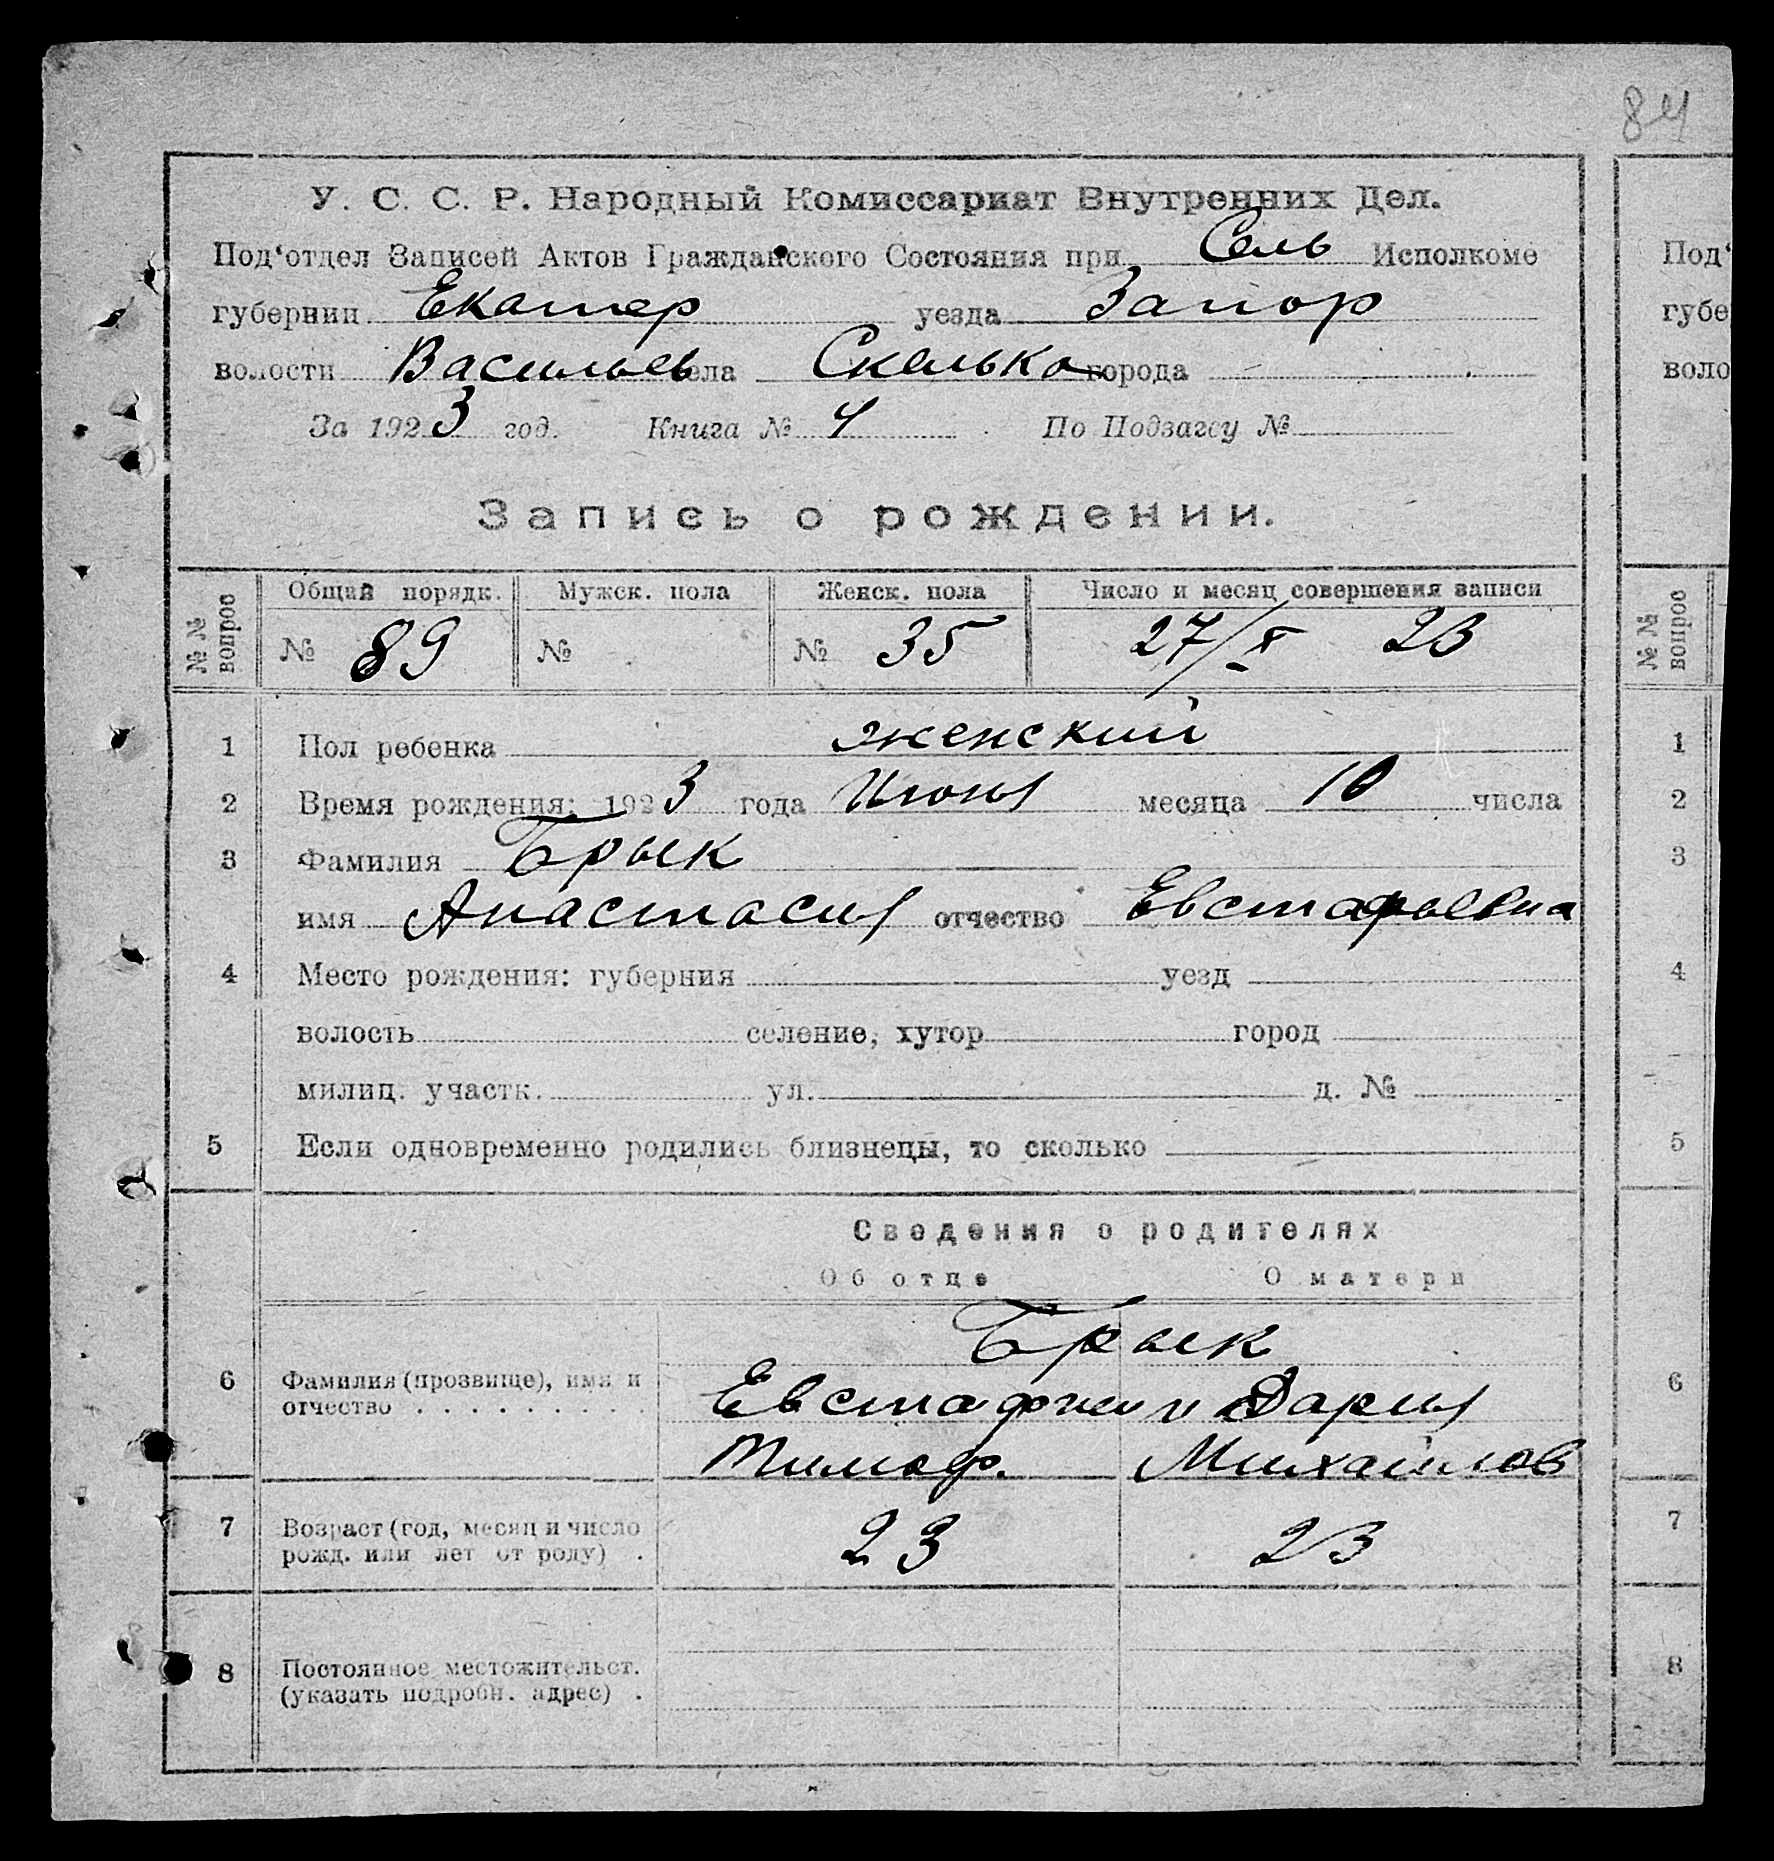 84
У. С. С. Р. Народный Комиссариат Внутренних Дел.
Под‘отдел Записей Актов Гражданского Состояния при Сель Исполкоме
губернии Екатер уезда Запор
волости Васильев села Скелька города —
За 1923 год. Книга № 4 По Подзагсу №
Запись о рождении.
№№ вопрос Общий порядк. Мужск. пола Женск. пола Число и месяц совершения записи
№ 89 № № 35 27/X 23
1 Пол ребенка женский
2 Время рождения: 1923 года Июня месяца 10 числа
3 Фамилия Брык
имя Анастасия отчество Евстафьевна
4 Место рождения: губерния уезд
волость селение, хутор город
милиц. участк. ул. д. №
5 Если одновременно родились близнецы, то сколько —
Сведения о родителях
Об отце О матери
Брык
6 Фамилия (прозвище), имя и Евстафий и Дария
отчество . . . . . . . . . Тимоф. Михайлов
7 Возраст (год, месяц и число 23 23
рожд. или лет от роду) .
8 Постоянное местожительст.
(указать подробн. адрес) .
Под‘
губе
воло
№№ вопрос
1
2
3
4
5
6
7
8